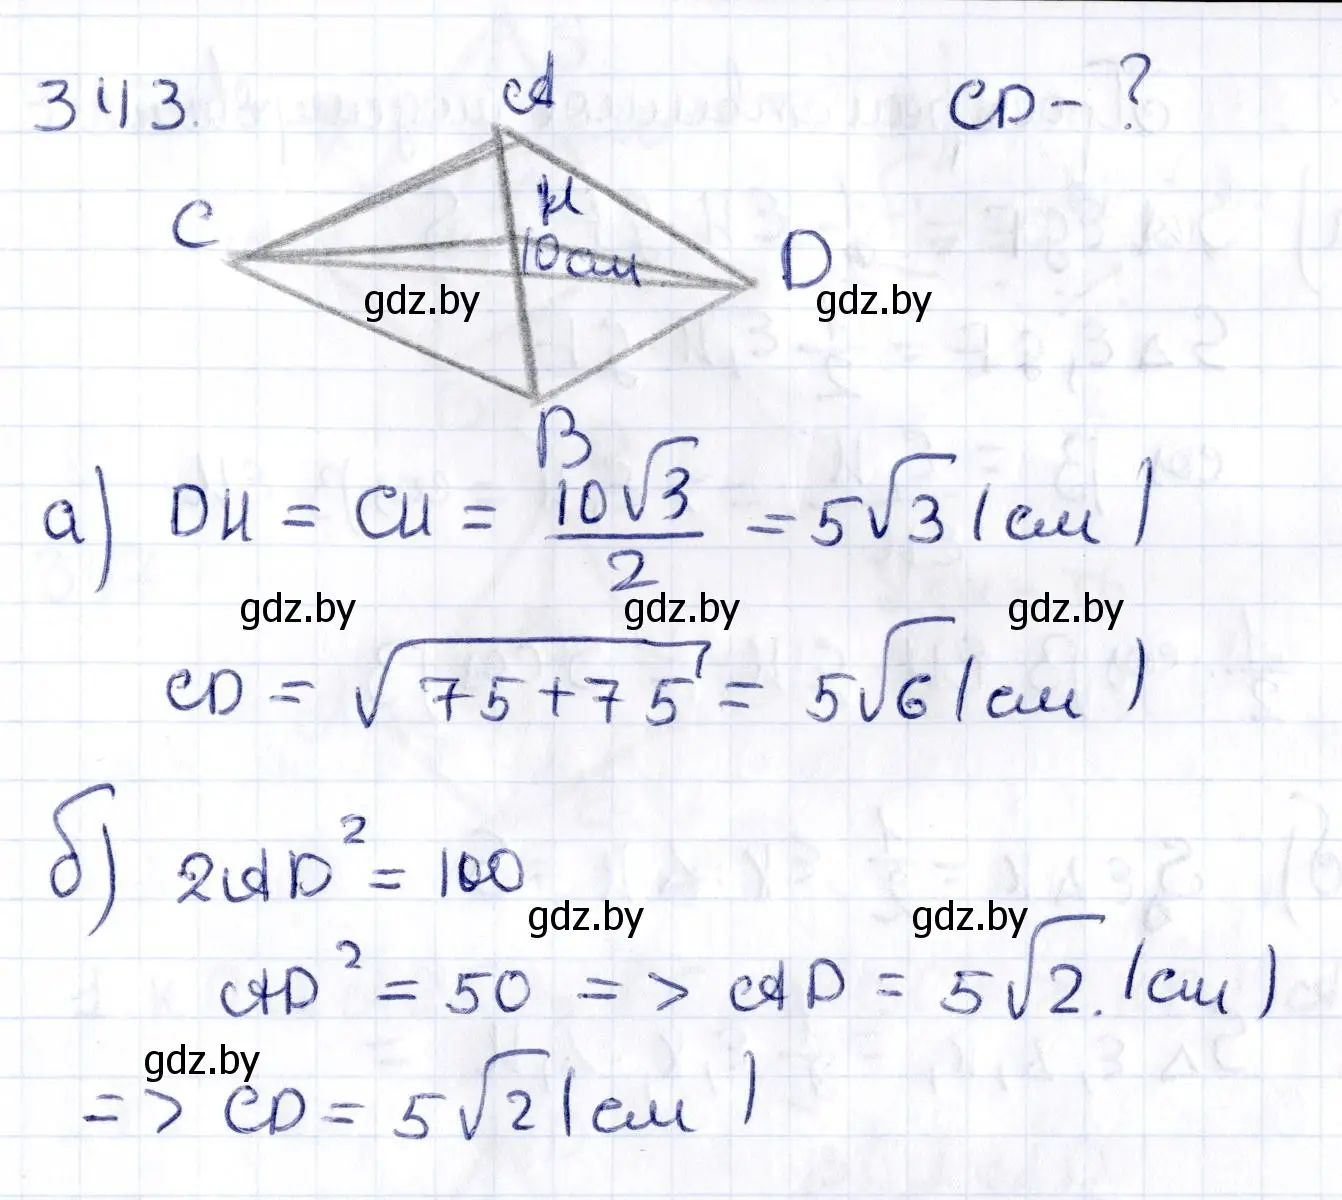 343. CD - ?
A
C
H
10 см
D
gdz.by gdz.by
B
а) DH = CH = 10√3/2 = 5√3 (см)
gdz.by gdz.by gdz.by
CD = √75+75 = 5√6 (см)
б) 2AD² = 100
gdz.by gdz.by
AD² = 50 => AD = 5√2. (см)
gdz.by
=> CD = 5√2 (см)